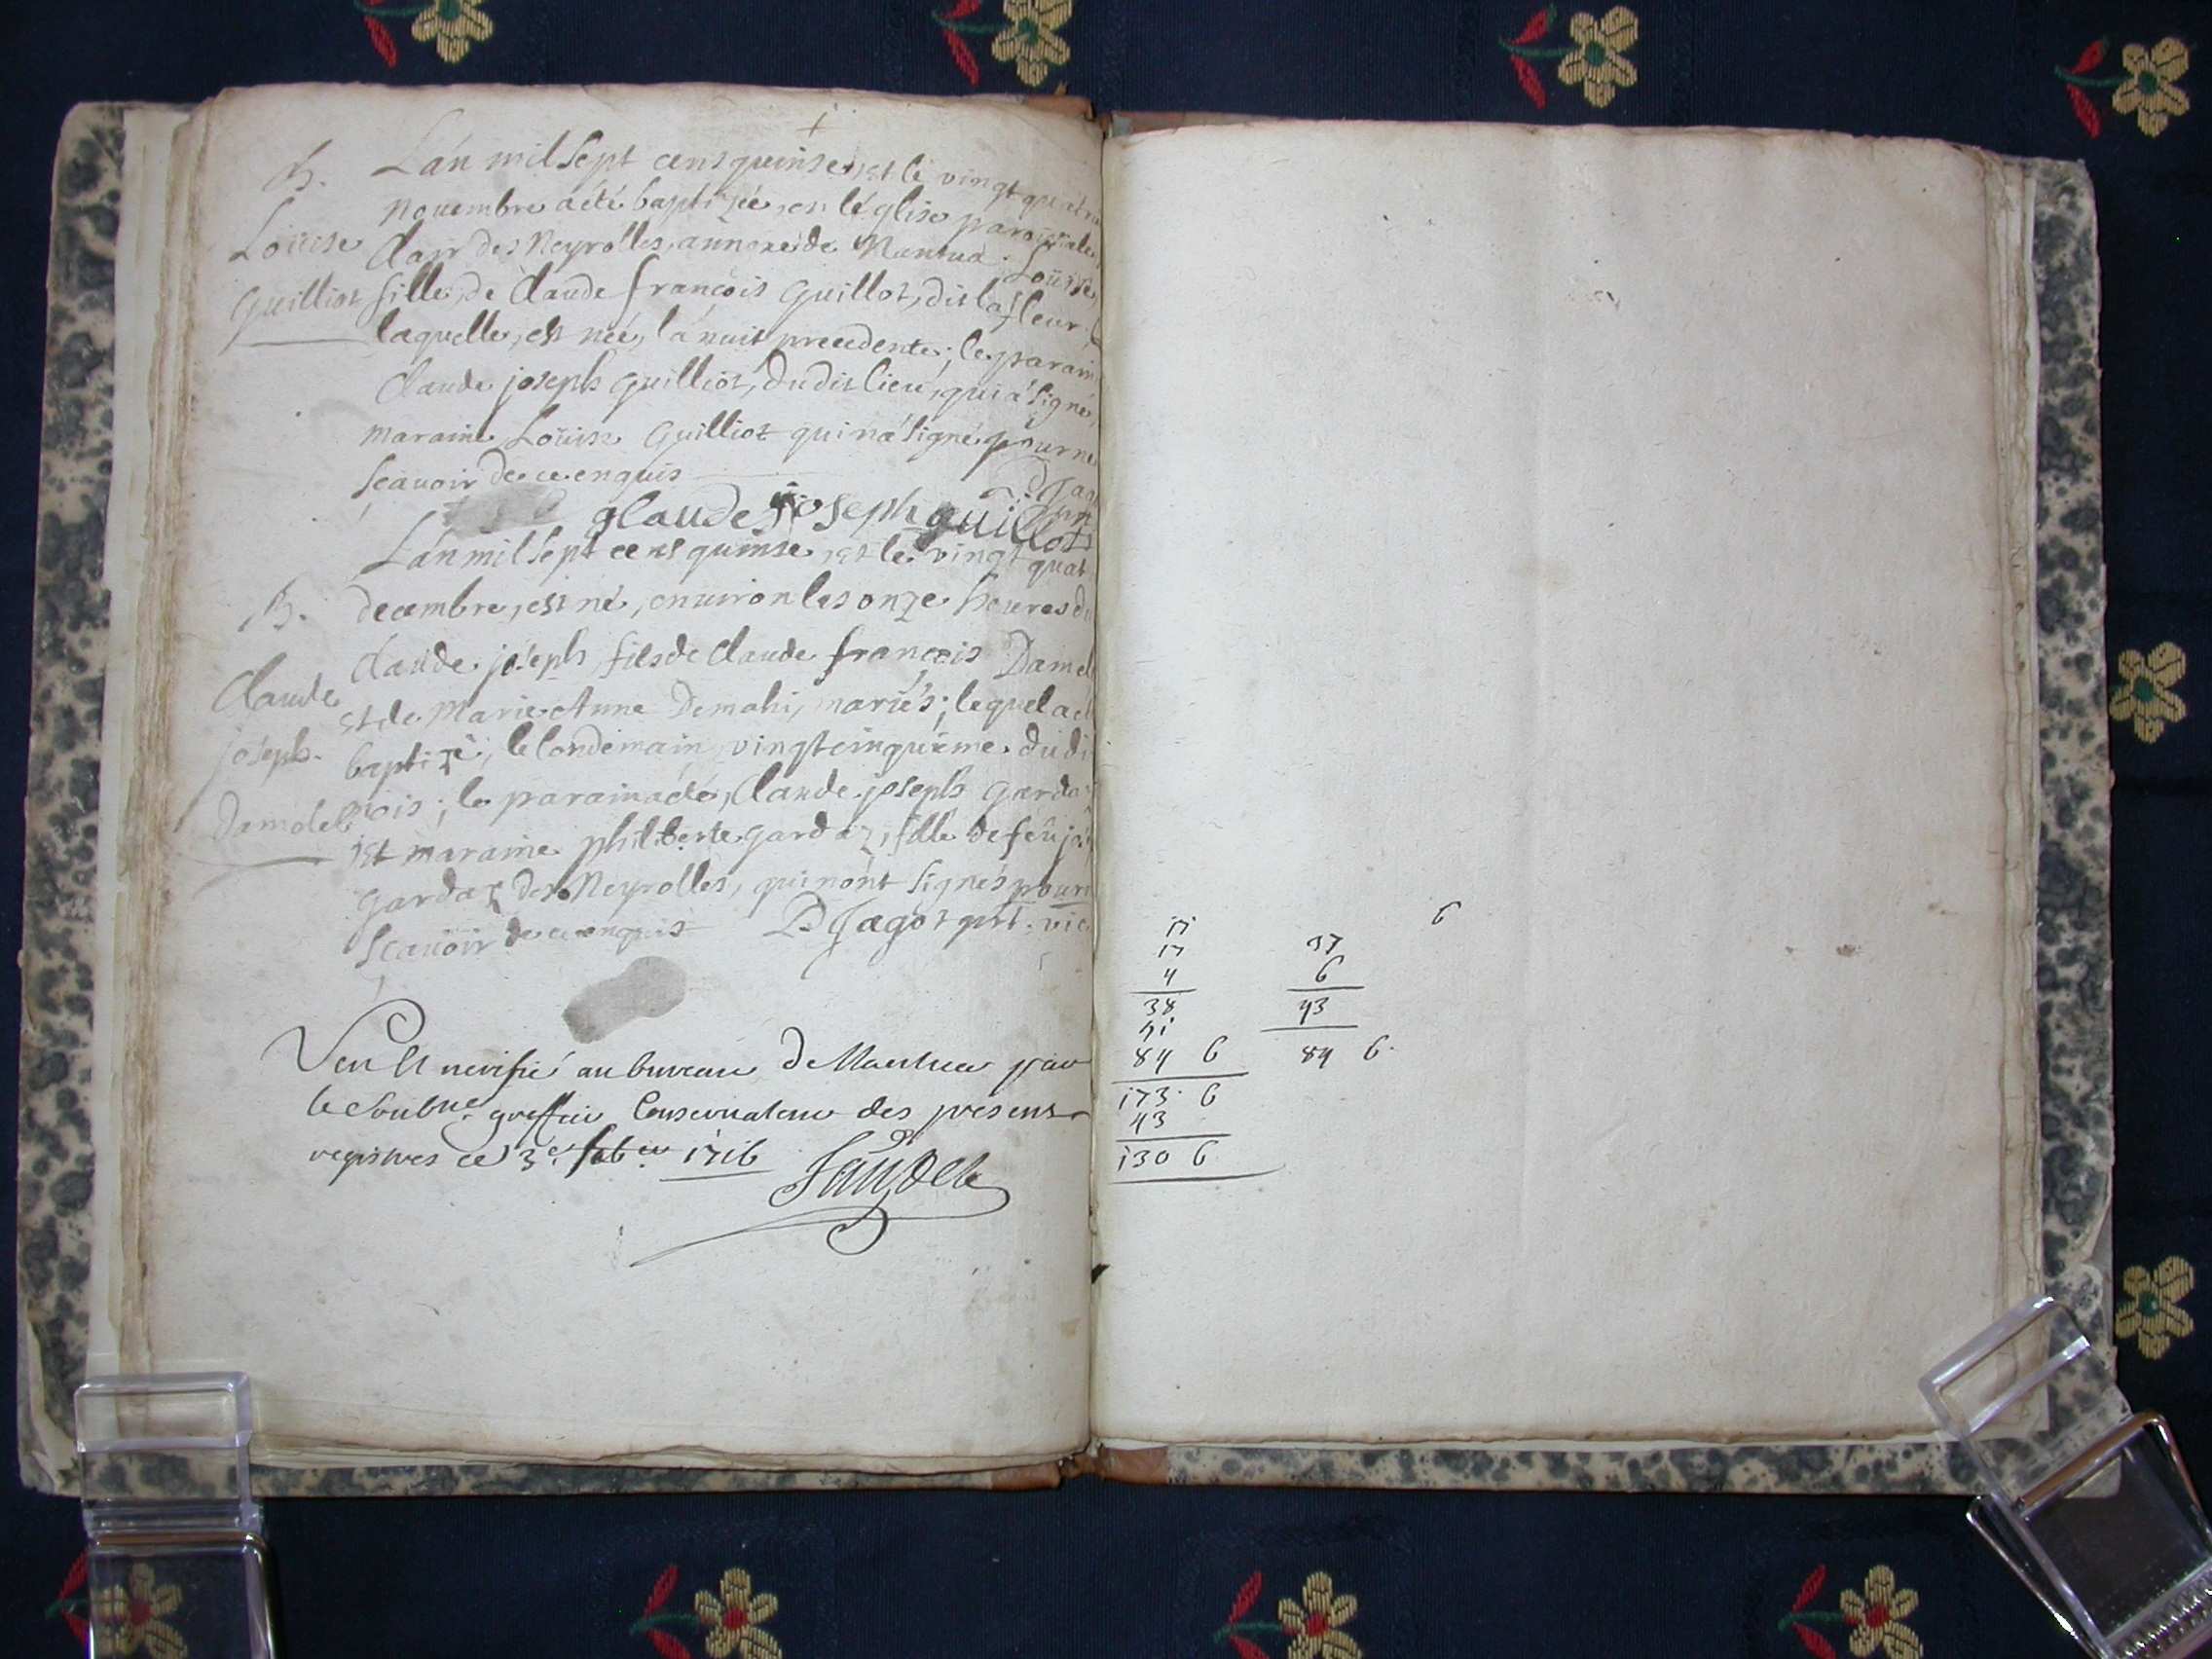 B.
Louise
Guilliot
L'an mil sept cens quinse, et le vingt quatre
novembre a été baptizée, en l'église paroissiale
clair des Neyrolles, annexe de Nantua. Louise
fille, de Claude françois Guillot, dit la fleur
laquelle, est née, la nuit precedente; le parain
Claude joseph Guilliot, dudit lieu, qui a signé,
maraine Loüise Guilliot qui n'a signé pour ne
scavoir de ce enquis
glaude joseph guillot
B.
Claude
joseph
Damdel
L'an mil sept cens quinse, et le vingt quat
decembre, est né, environ les onze heures du
claude joseph, fils de Claude françois Damde
et de Marie Anne Demahi, mariés; lequel a
baptizé, le londemain, vingtcinquieme dudi
mois; le parain a été, Claude joseph Gardaz
et maraine philiberte gardaz, fille de feu jos
gardaz des Neyrolles, qui n'ont signés pour
scavoir de ce enquis D Jagot prt. vic
Veu et verifié au bureau de Nantua par
le soubne greffier Conservateur des presens
registres ce 3e feber 1716
17
17
4
38
41
84 6
173 6
43
130 6
6
37
6
43
84 6